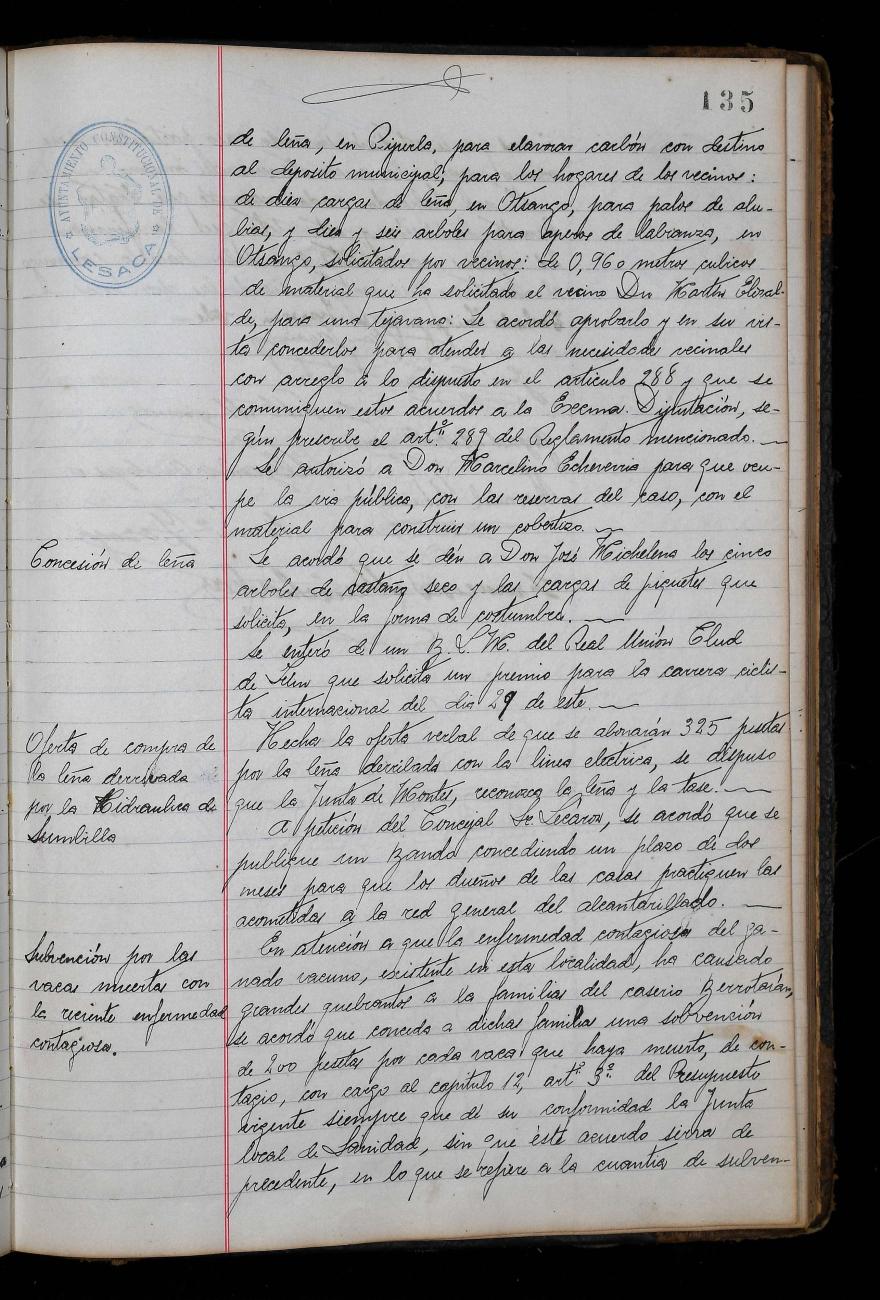 135
AYUNTAMIENTO CONSTITUCIONAL DE
LESACA
de leña, en Piperla, para elavorar carbón con destino
al deposito municipal, para los hogares de los vecinos:
de diez cargas de leña, en Otsango, para palos de alu-
bias, y diez y seis arboles para aperos de labranza, en
Otsango, solicitados por vecinos: de 0,960 metros cubicos
de material que ha solicitado el vecino Dn Martin Elizal-
de, para una tejavana: Se acordó aprobarlo y en su vis-
ta concederlos para atender a las necesidades vecinales
con arreglo a lo dispuesto en el artículo 288 y que se
comuniquen estos acuerdos a la Excma. Diputación, se-
gún prescribe el artº. 289 del Reglamento mencionado.
Se autorizó a Don Marcelino Echeverria para que ocu-
pe la via pública, con las reservas del caso, con el
material para construir un cobertizo.
Concesión de leña
Se acordó que se dén a Don José Michelena los cinco
arboles de castaño seco y las cargas de piquetes que
solicita, en la forma de costumbre.
Se enteró de un B. L. M. del Real Unión Club
de Irún que solicita un premio para la carrera ciclis-
ta internacional del dia 29 de este.
Oferta de compra de
la leña derrivada
por la Hidraulica de
Sumbilla
Hecha la oferta verbal de que se abonarán 325 pesetas
por la leña derribada con la linea electrica, se dispuso
que la Junta de Montes, reconozca la leña y la tase.
A petición del Concejal Sr. Lecaroz, se acordó que se
publique un Bando concediendo un plazo de dos
meses para que los dueños de las casas practiquen las
acometidas a la red general del alcantarillado.
Subvención por las
vacas muertas con
la reciente enfermedad
contagiosa.
En atención a que la enfermedad contagiosa del ga-
nado vacuno, existente en esta localidad, ha causado
grandes quebrantos a la familias del caserio Berrotarán,
se acordó que conceda a dichas familia una sobvención
de 200 pesetas por cada vaca que haya muerto, de con-
tagio, con cargo al capítulo 12, artº. 3º. del Presupuesto
vigente siempre que dé su conformidad la Junta
local de Sanidad, sin que éste acuerdo sirva de
precedente, en lo que se refiere a la cuantia de subven-